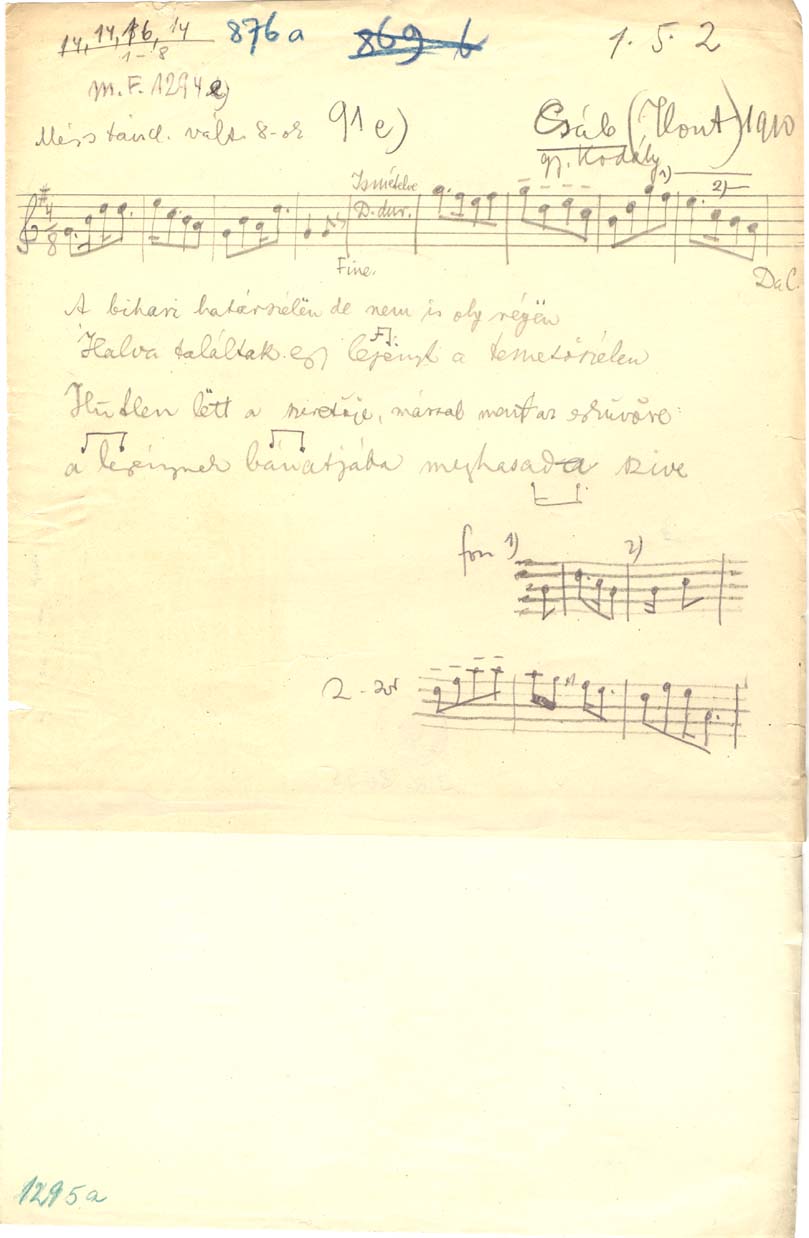 14, 14, 16, 14 876a 869 b 1. 5. 2
1–8
M.F. 1294 e)
tánd. vált. 8-or 91 e) Csáb (Hont) 1910
gy. Kodály
Ismételve
D. dur. 1) 2)
4
8
Fine. Da C.
A bihari határszélën de nem is oly régën
Halva találtak egy legényt a temetőszélen
Hűtlen lëtt a szeretője, mással ment az esküvőre
a legénynek bánatjába meghasada szive
fon 1) 2)
2-szr
1295a